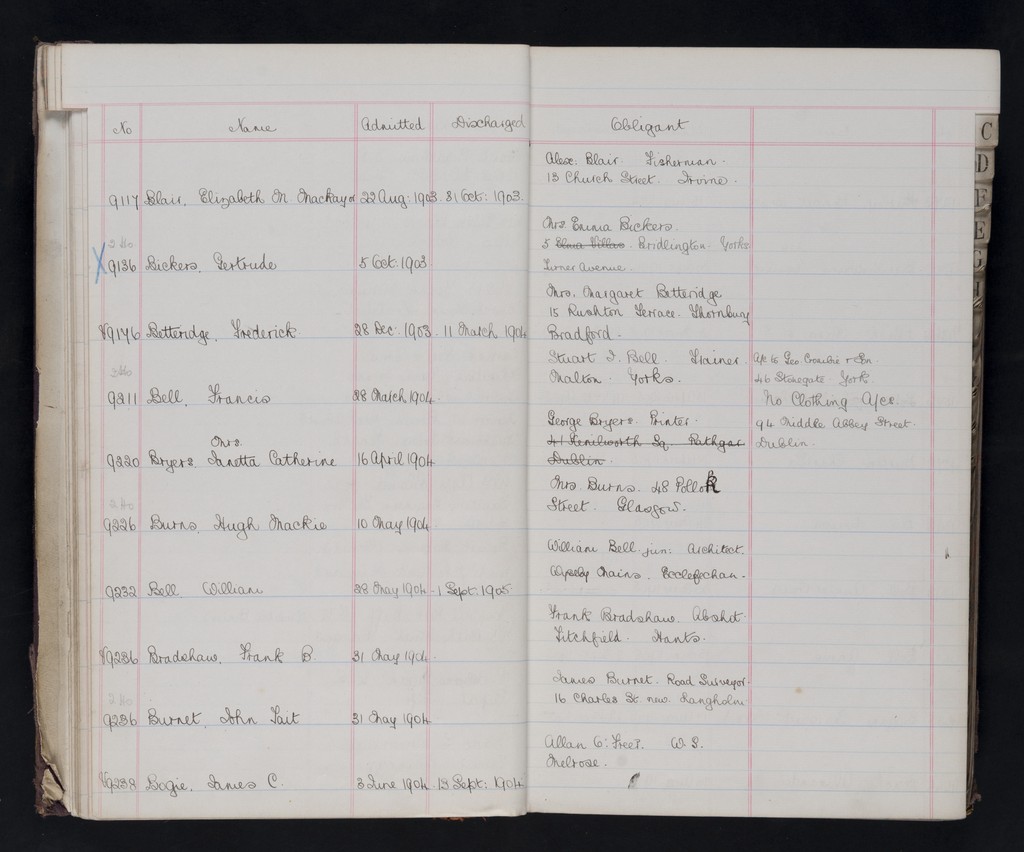 No Name Admitted Discharged Obligant
Alex: Blair. Fisherman.
13 Church Street. Irvine.
9117 Blair, Elizabeth M Mackay or 22 Aug: 1903. 31 Oct: 1903.
Mrs Emma Bickers.
5 Elma Villas. Bridlington. Yorks
9136 Bickers, Gertrude 5 Oct. 1903
Turner Avenue.
Mrs. Margaret Betteridge
15 Rushton Terrace. Thornbury
9176 Betteridge, Frederick 28 Dec. 1903. 11 March 1904
Bradford.
Stuart I. Bell. Trainer. A/c to Geo. Crombie & Son.
Malton. Yorks. 46 Stonegate York.
9211 Bell, Francis 28 March 1904. No Clothing A/cs.
George Bryers. Printer. 94 Middle Abbey Street.
41 Kenilworth Sq. Rathgar Dublin.
Mrs.
9220 Bryers, Janetta Catherine 16 April 1904
Dublin.
Mrs. Burns. 48 Pollok
Street. Glasgow.
9226 Burns, Hugh Mackie 10 May 1904
William Bell. jun: Architect.
Wyseby Mains. Ecclefechan.
9232 Bell William 28 May 1904. 1 Sept: 1905
Frank Bradshaw. Abshot.
Titchfield. Hants.
Bradshaw, Frank B. 31 May 1904.
James Burnet. Road Surveyor.
16 Charles St. new. Langholm
9236 Burnet, John Tait 31 May 1904
Allan C. W.S.
Melrose.
9238 Bogie, James C. 3 June 1904. 13 Sept: 1904
C
D
F
E
G